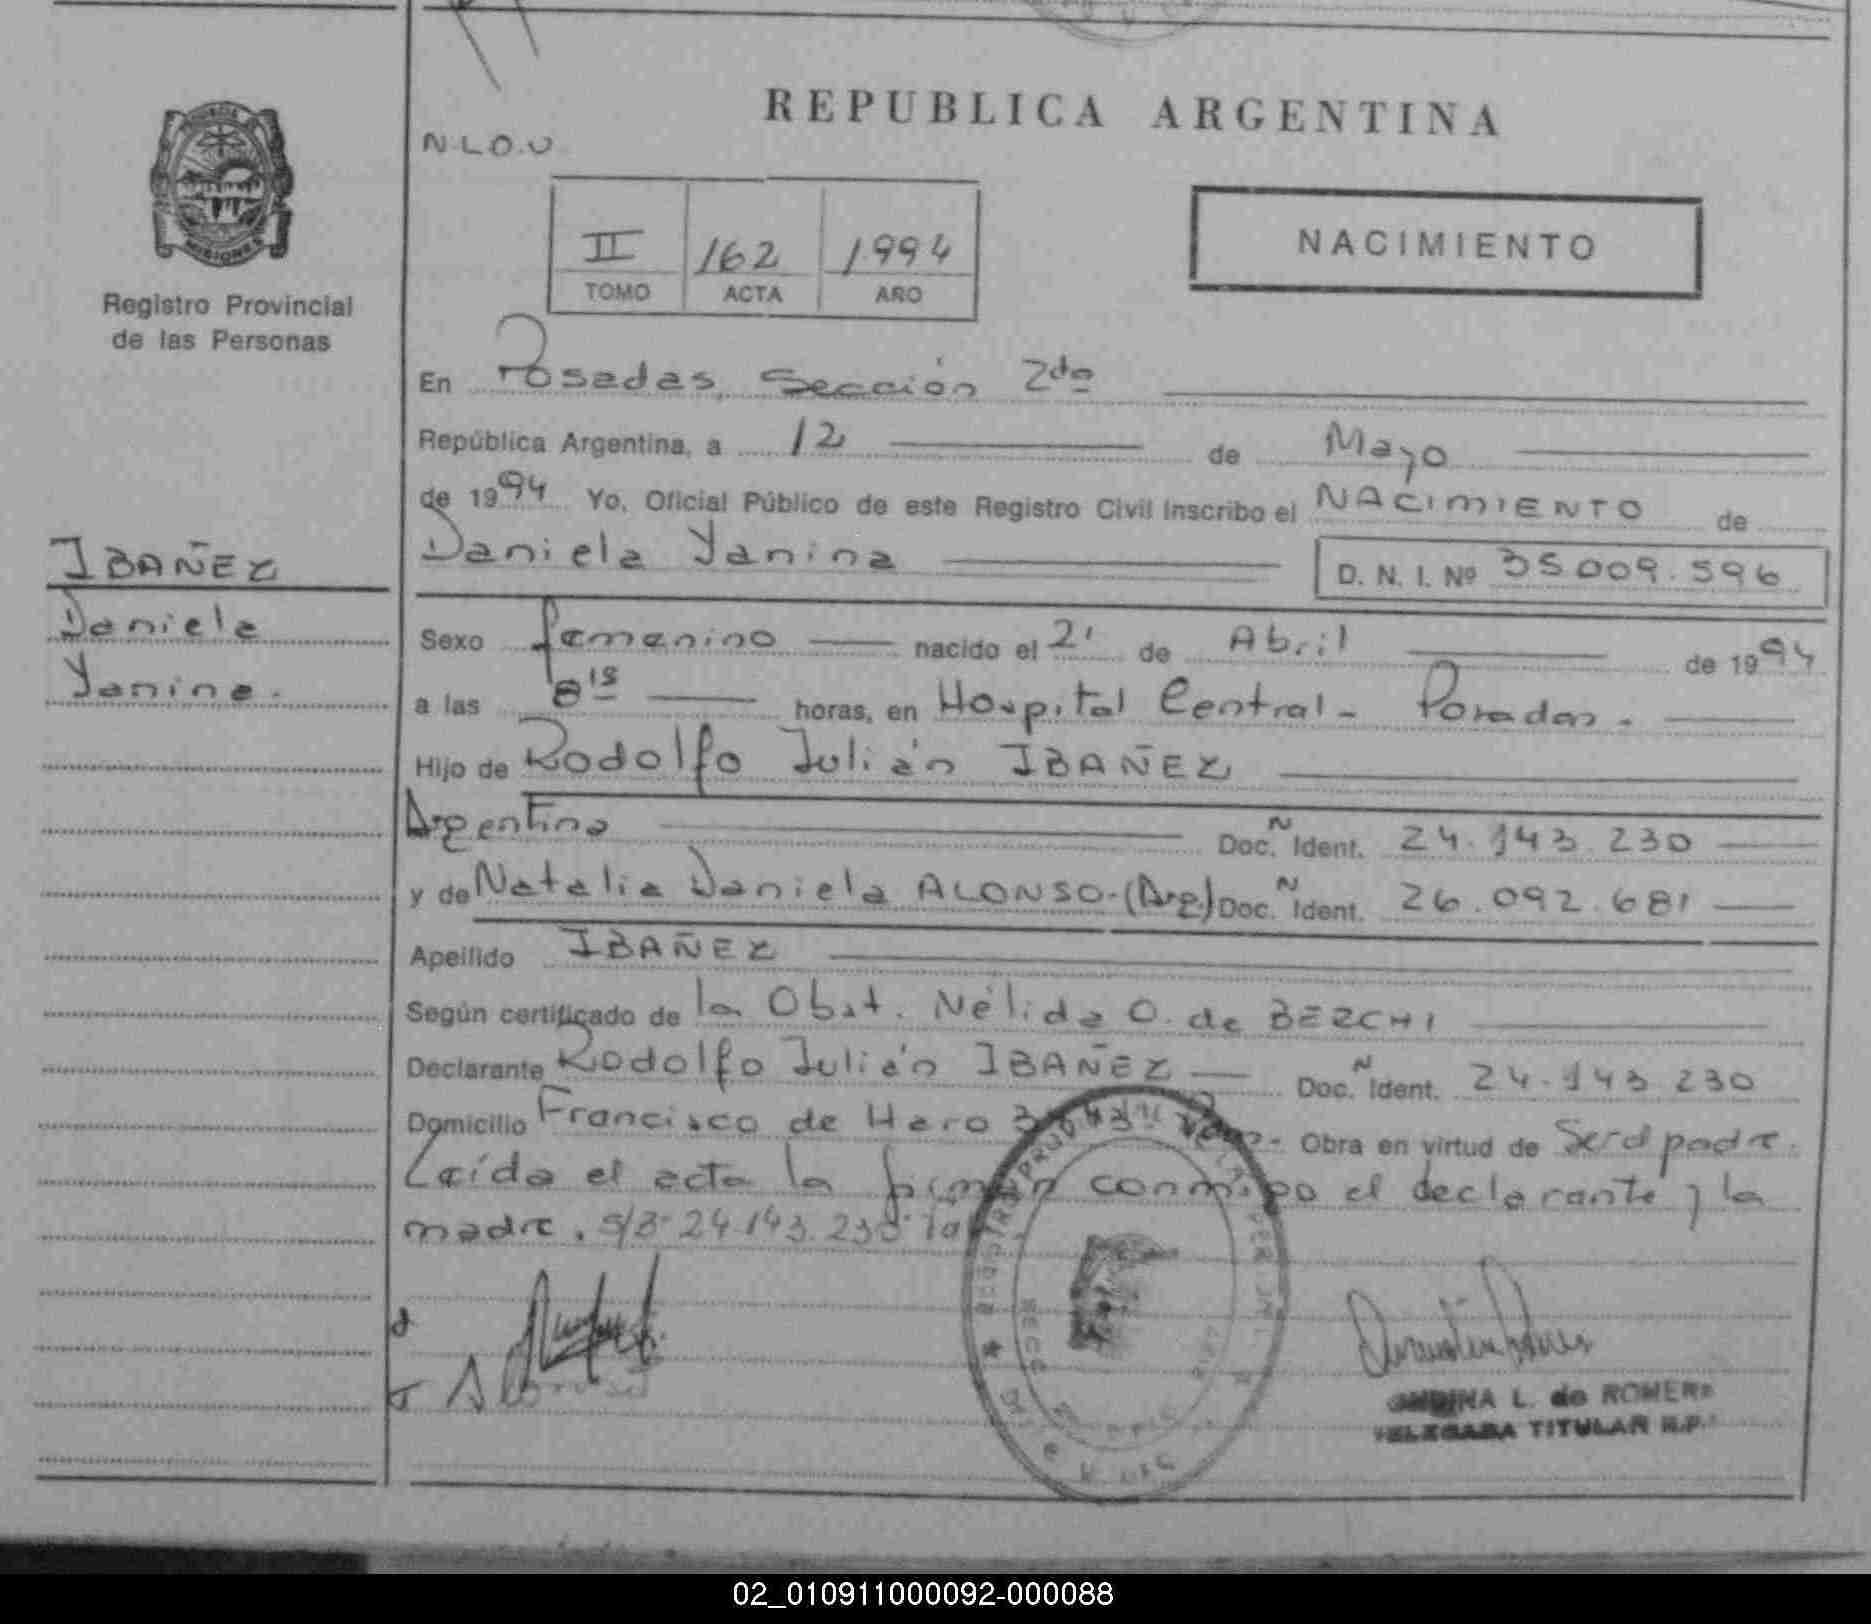 REPUBLICA ARGENTINA
N.L.O.U
II 162 1994
TOMO ACTA AÑO
NACIMIENTO
MISIONES
Registro Provincial
de las Personas
IBAÑEZ
Daniela
Yanina.
En Posadas, Sección 2da
República Argentina, a 12 de Mayo
de 1994 Yo, Oficial Público de este Registro Civil Inscribo el NACIMIENTO de
Daniela Yanina D. N. I. Nº 35009.596
Sexo femenino nacido el 21 de Abril de 1994
a las 8 15 horas, en Hospital Central - Posadas.
Hijo de Rodolfo Julián IBAÑEZ
Argentino Doc. Ñ Ident. 24.143.230
y de Natalia Daniela ALONSO-(Arg.) Doc. Ñ Ident. 26.092.681
Apellido IBAÑEZ
Según certificado de la Obst. Nélida O. de BERCHI
Declarante Rodolfo Julián IBAÑEZ Doc. Ñ Ident. 24.143.230
Domicilio Francisco de Haro Obra en virtud de Ser el padre.
Leída el acta la firman conmigo el declarante y la
madre. S/B-24.143.230
ONDINA L. de ROMERO
DELEGADA TITULAR R.P.
02_010911000092-000088